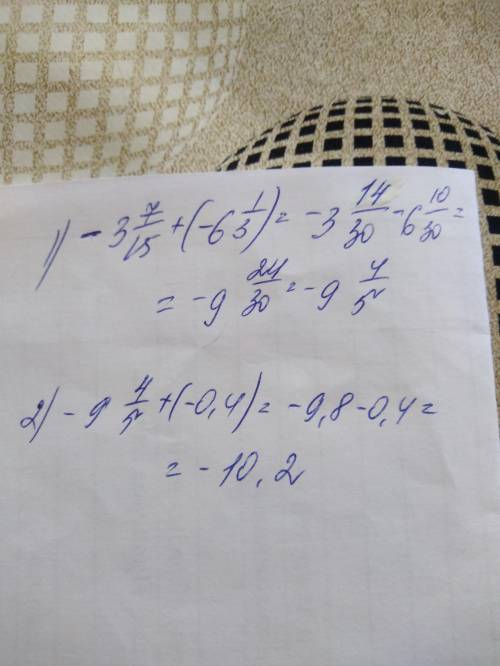 1) - 3 7/15 + (-6 1/3) = -3 14/30 - 6 10/30 =
= -9 24/30 = -9 4/5
2) - 9 4/5 + (-0,4) = -9,8 - 0,4 =
= - 10,2